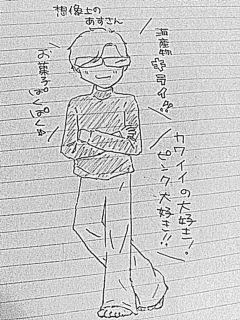 想像上のあすさん
海産物寿司!!
お菓子ぱくぱく
カワイイの大好き!
ピンク大好き!!